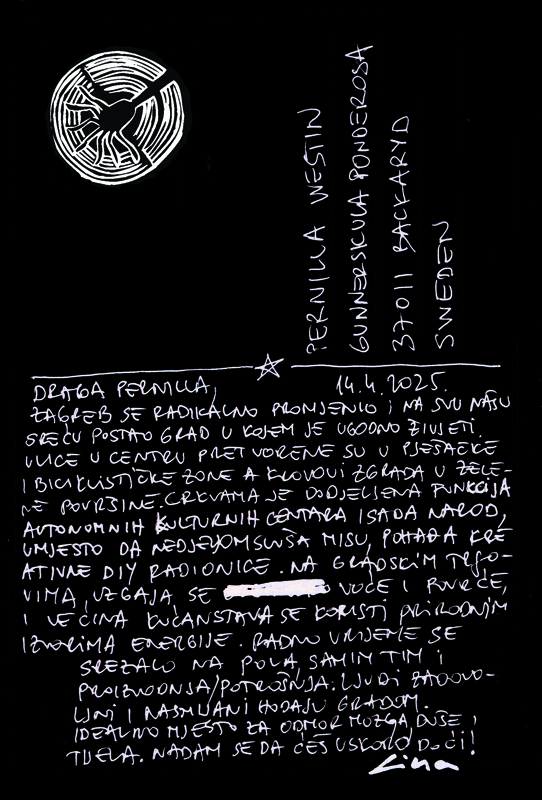 PERNILLA WESTIN
GUNNERSKULA PONDEROSA
37011 BACKARYD
SWEDEN
DRAGA PERNILLA, 14.4.2025.
ZAGREB SE RADIKALNO PROMJENIO I NA SVU NAŠU
SREĆU POSTAO GRAD U KOJEM JE UGODNO ŽIVJETI.
ULICE U CENTRU PRETVORENE SU U PJEŠAČKE
I BICIKLISTIČKE ZONE A KROVOVI ZGRADA U ZELE-
NE POVRŠINE. CRKVAMA JE DODJELJENA FUNKCIJA
AUTONOMNIH KULTURNIH CENTARA I SADA NAROD,
UMJESTO DA NEDJELJOM SLUŠA MISU, POHAĐA KRE
ATIVNE DIY RADIONICE. NA GRADSKIM TRGO-
VIMA, UZGAJA SE VOĆE I POVRĆE,
I VEĆINA KUĆANSTAVA SE KORISTI PRIRODNIM
IZVORIMA ENERGIJE. RADNO VRIJEME SE
SREZALO NA POLA, SAMIM TIM I
PROIZVODNJA/POTROŠNJA. LJUDI ZADOVO-
LJNI I NASMIJANI HODAJU GRADOM.
IDEALNO MJESTO ZA ODMOR MOZGA, DUŠE I
TIJELA. NADAM SE DA ĆEŠ USKORO DOĆI!
Lina